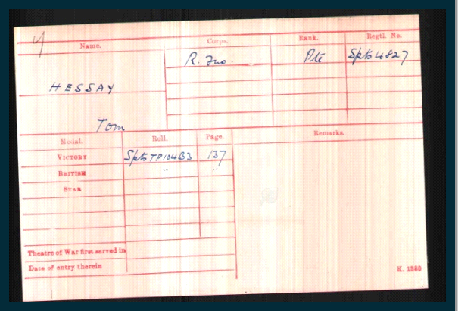 Name. Corps. Rank. Regtl. No.
HESSAY R. Fus Pte Spts 4827
Tom
Medal. Roll. Page Remarks.
VICTORY Spts TP 104 B3 137
BRITISH
STAR
Theatre of War first served in
Date of entry therein
K. 1380